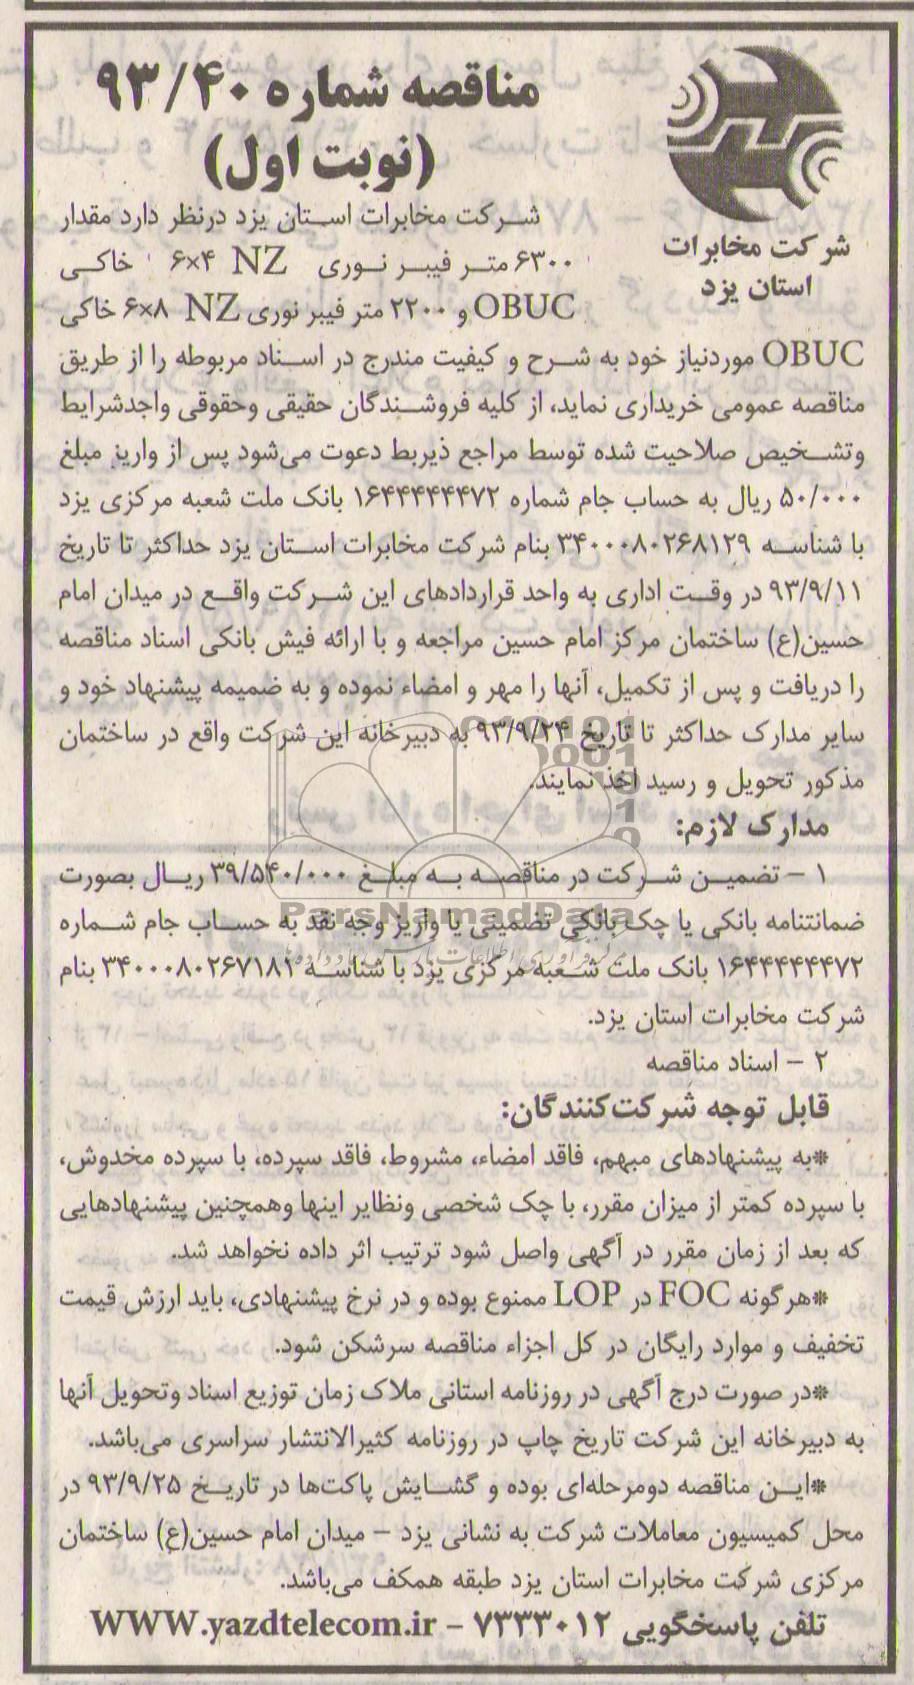 مناقصه شماره ۹۳/۴۰
(نوبت اول)
شرکت مخابرات
استان یزد
شرکت مخابرات استان یزد درنظر دارد مقدار
۶۳۰۰ متر فیبر نوری NZ ۶×۴ خاکی
OBUC و ۲۲۰۰ متر فیبر نوری NZ ۶×۸ خاکی
OBUC موردنیاز خود به شرح و کیفیت مندرج در اسناد مربوطه را از طریق
مناقصه عمومی خریداری نماید، از کلیه فروشندگان حقیقی وحقوقی واجدشرایط
وتشخیص صلاحیت شده توسط مراجع ذیربط دعوت می‌شود پس از واریز مبلغ
۵۰/۰۰۰ ریال به حساب جام شماره ۱۶۴۴۴۴۴۴۷۲ بانک ملت شعبه مرکزی یزد
با شناسه ۳۴۰۰۰۸۰۲۶۸۱۲۹ بنام شرکت مخابرات استان یزد حداکثر تا تاریخ
۹۳/۹/۱۱ در وقت اداری به واحد قراردادهای این شرکت واقع در میدان امام
حسین(ع) ساختمان مرکز امام حسین مراجعه و با ارائه فیش بانکی اسناد مناقصه
را دریافت و پس از تکمیل، آنها را مهر و امضاء نموده و به ضمیمه پیشنهاد خود و
سایر مدارک حداکثر تا تاریخ ۹۳/۹/۲۴ به دبیرخانه این شرکت واقع در ساختمان
مذکور تحویل و رسید اخذ نمایند.
مدارک لازم:
۱ – تضمین شرکت در مناقصه به مبلغ ۳۹/۵۴۰/۰۰۰ ریال بصورت
ضمانتنامه بانکی یا چک بانکی تضمینی یا واریز وجه نقد به حساب جام شماره
ParsNamadData
۱۶۴۴۴۴۴۴۷۲ بانک ملت شعبه مرکزی یزد با شناسه ۳۴۰۰۰۸۰۲۶۷۱۸۱ بنام
شرکت مخابرات استان یزد.
۲ – اسناد مناقصه
قابل توجه شرکت‌کنندگان:
*به پیشنهادهای مبهم، فاقد امضاء، مشروط، فاقد سپرده، با سپرده مخدوش،
با سپرده کمتر از میزان مقرر، با چک شخصی ونظایر اینها وهمچنین پیشنهادهایی
که بعد از زمان مقرر در آگهی واصل شود ترتیب اثر داده نخواهد شد.
*هرگونه FOC در LOP ممنوع بوده و در نرخ پیشنهادی، باید ارزش قیمت
تخفیف و موارد رایگان در کل اجزاء مناقصه سرشکن شود.
*در صورت درج آگهی در روزنامه استانی ملاک زمان توزیع اسناد وتحویل آنها
به دبیرخانه این شرکت تاریخ چاپ در روزنامه کثیرالانتشار سراسری می‌باشد.
*این مناقصه دومرحله‌ای بوده و گشایش پاکت‌ها در تاریخ ۹۳/۹/۲۵ در
محل کمیسیون معاملات شرکت به نشانی یزد – میدان امام حسین(ع) ساختمان
مرکزی شرکت مخابرات استان یزد طبقه همکف می‌باشد.
تلفن پاسخگویی ۷۳۳۳۰۱۲ – WWW.yazdtelecom.ir